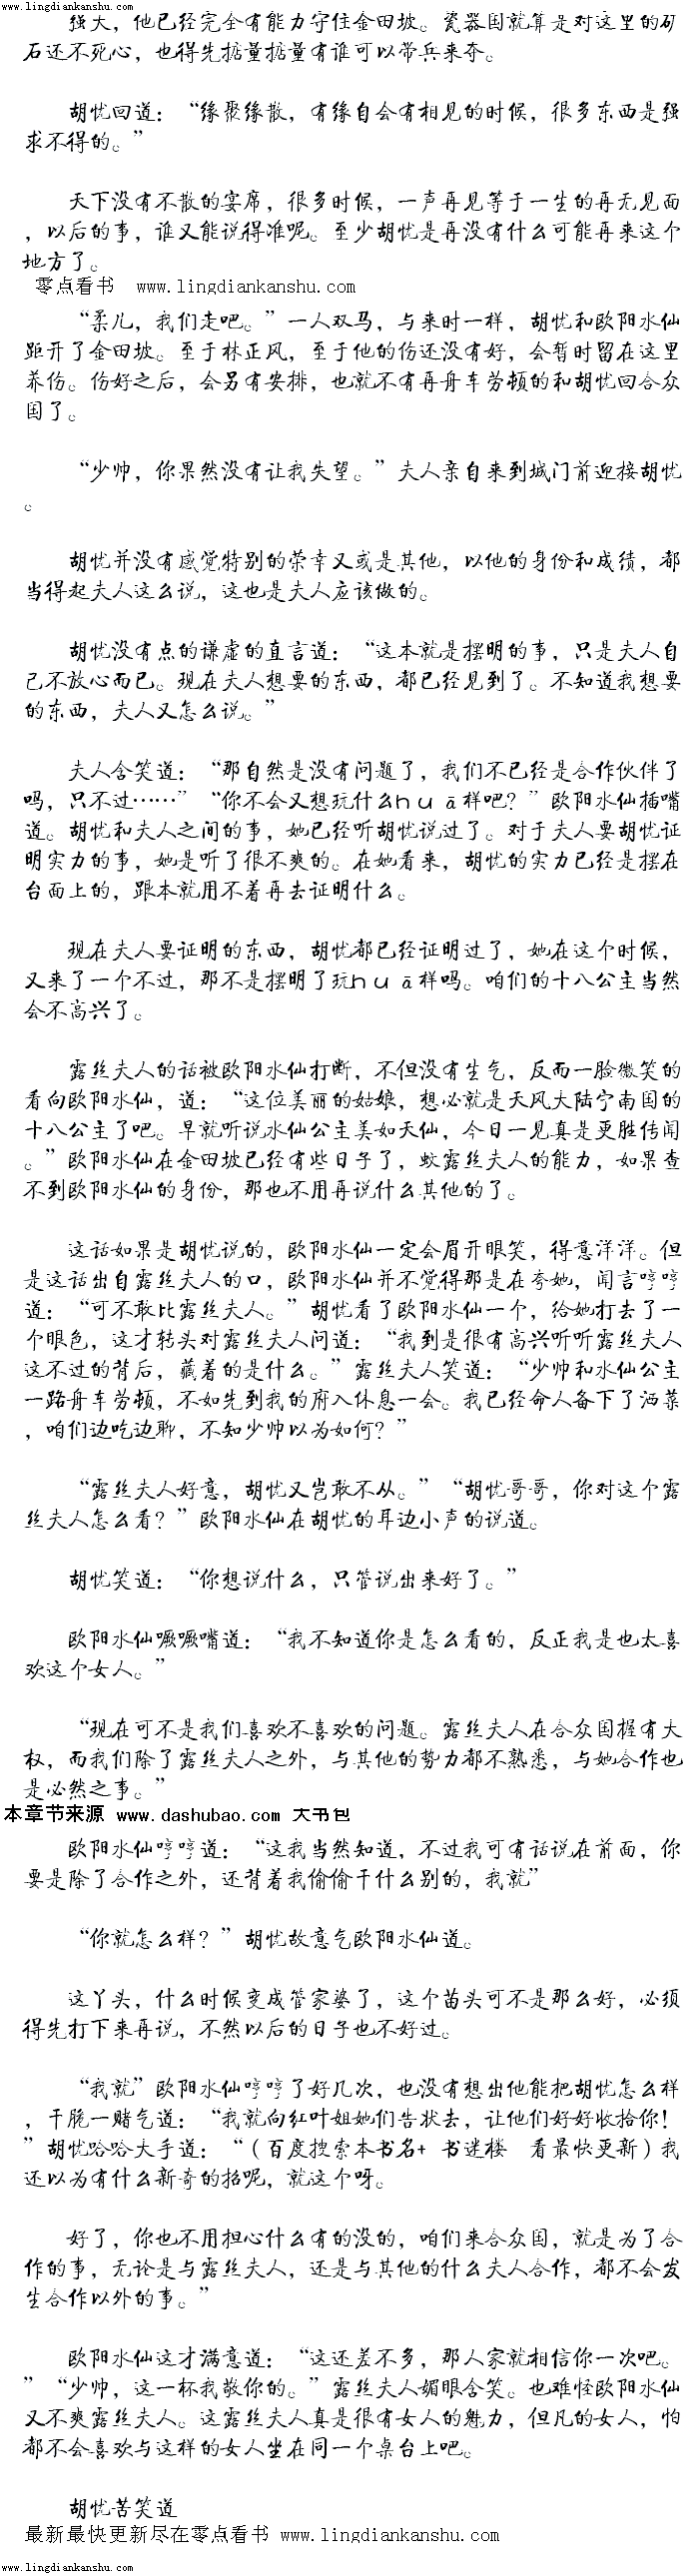 www.lingdiankanshu.com
强大，他已经完全有能力守住金田坡。瓷器国就算是对这里的矿
石还不死心，也得先掂量掂量有谁可以带兵来夺。
胡忧回道：“缘聚缘散，有缘自会有相见的时候，很多东西是强
求不得的。”
天下没有不散的宴席，很多时候，一声再见等于一生的再无见面
，以后的事，谁又能说得准呢。至少胡忧是再没有什么可能再来这个
地方了。
零点看书 www.lingdiankanshu.com
“柔儿，我们走吧。”一人双马，与来时一样，胡忧和欧阳水仙
距开了金田坡。至于林正风，至于他的伤还没有好，会暂时留在这里
养伤。伤好之后，会另有安排，也就不有再舟车劳顿的和胡忧回合众
国了。
“少帅，你果然没有让我失望。”夫人亲自来到城门前迎接胡忧
。
胡忧并没有感觉特别的荣幸又或是其他，以他的身份和成绩，都
当得起夫人这么说，这也是夫人应该做的。
胡忧没有点的谦虚的直言道：“这本就是摆明的事，只是夫人自
己不放心而已。现在夫人想要的东西，都已经见到了。不知道我想要
的东西，夫人又怎么说。”
夫人含笑道：“那自然是没有问题了，我们不已经是合作伙伴了
吗，只不过……”“你不会又想玩什么huā样吧？”欧阳水仙插嘴
道。胡忧和夫人之间的事，她已经听胡忧说过了。对于夫人要胡忧证
明实力的事，她是听了很不爽的。在她看来，胡忧的实力已经是摆在
台面上的，跟本就用不着再去证明什么。
现在夫人要证明的东西，胡忧都已经证明过了，她在这个时候，
又来了一个不过，那不是摆明了玩huā样吗。咱们的十八公主当然
会不高兴了。
露丝夫人的话被欧阳水仙打断，不但没有生气，反而一脸微笑的
看向欧阳水仙，道：“这位美丽的姑娘，想必就是天风大陆宁南国的
十八公主了吧。早就听说水仙公主美如天仙，今日一见真是更胜传闻
。”欧阳水仙在金田坡已经有些日子了，蚊露丝夫人的能力，如果查
不到欧阳水仙的身份，那也不用再说什么其他的了。
这话如果是胡忧说的，欧阳水仙一定会眉开眼笑，得意洋洋。但
是这话出自露丝夫人的口，欧阳水仙并不觉得那是在夸她，闻言哼哼
道：“可不敢比露丝夫人。”胡忧看了欧阳水仙一个，给她打去了一
个眼色，这才转头对露丝夫人问道：“我到是很有高兴听听露丝夫人
这不过的背后，藏着的是什么。”露丝夫人笑道：“少帅和水仙公主
一路舟车劳顿，不如先到我的府入休息一会。我已经命人备下了洒菜
，咱们边吃边聊，不知少帅以为如何？”
“露丝夫人好意，胡忧又岂敢不从。”“胡忧哥哥，你对这个露
丝夫人怎么看？”欧阳水仙在胡忧的耳边小声的说道。
胡忧笑道：“你想说什么，只管说出来好了。”
欧阳水仙噘噘嘴道：“我不知道你是怎么看的，反正我是也太喜
欢这个女人。”
“现在可不是我们喜欢不喜欢的问题。露丝夫人在合众国握有大
权，而我们除了露丝夫人之外，与其他的势力都不熟悉，与她合作也
是必然之事。”
本章节来源 www.dashubao.com 大书包
欧阳水仙哼哼道：“这我当然知道，不过我可有话说在前面，你
要是除了合作之外，还背着我偷偷干什么别的，我就”
“你就怎么样？”胡忧故意气欧阳水仙道。
这丫头，什么时候变成管家婆了，这个苗头可不是那么好，必须
得先打下来再说，不然以后的日子也不好过。
“我就”欧阳水仙哼哼了好几次，也没有想出他能把胡忧怎么样
，干脆一赌气道：“我就向红叶姐她们告状去，让他们好好收拾你！
”胡忧哈哈大手道：“（百度搜索本书名+ 书迷楼 看最快更新）我
还以为有什么新奇的招呢，就这个呀。
好了，你也不用担心什么有的没的，咱们来合众国，就是为了合
作的事，无论是与露丝夫人，还是与其他的什么夫人合作，都不会发
生合作以外的事。”
欧阳水仙这才满意道：“这还差不多，那人家就相信你一次吧。
”“少帅，这一杯我敬你的。”露丝夫人媚眼含笑。也难怪欧阳水仙
又不爽露丝夫人。这露丝夫人真是很有女人的魅力，但凡的女人，怕
都不会喜欢与这样的女人坐在同一个桌台上吧。
胡忧苦笑道
最新最快更新尽在零点看书 www.lingdiankanshu.com
www.lingdiankanshu.com